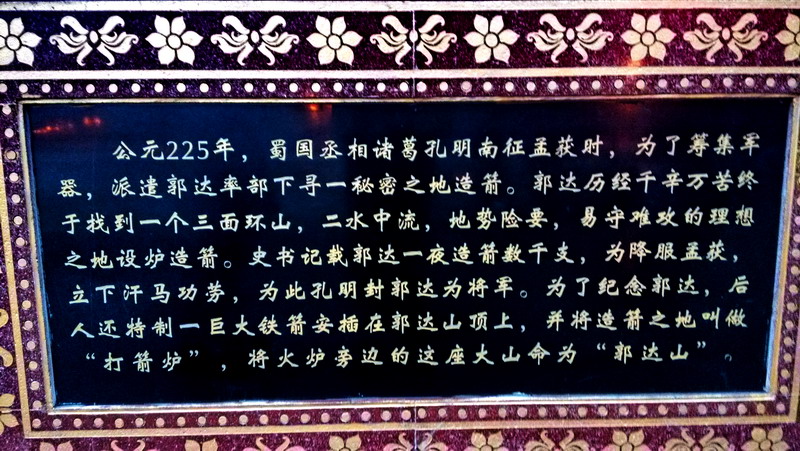 公元225年，蜀国丞相诸葛孔明南征孟获时，为了筹集军
器，派遣郭达率部下寻一秘密之地造箭。郭达历经千辛万苦终
于找到一个三面环山，二水中流，地势险要，易守难攻的理想
之地设炉造箭。史书记载郭达一夜造箭数千支，为降服孟获，
立下汗马功劳，为此孔明封郭达为将军。为了纪念郭达，后
人还特制一巨大铁箭安插在郭达山顶上，并将造箭之地叫做
“打箭炉”，将火炉旁边的这座大山命为“郭达山”。